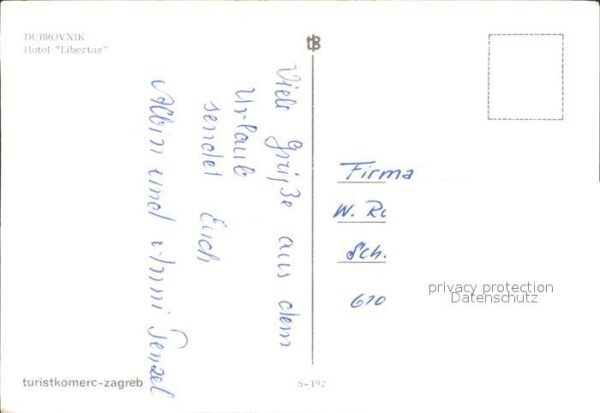 DUBROVNIK
Hotel "Libertas"
Viele Grüße aus dem
Urlaub
sendet Euch
Albin und Anni Penzel
Firma
W. Ru
Sch.
670
privacy protection
Datenschutz
turistkomerc-zagreb
S-192